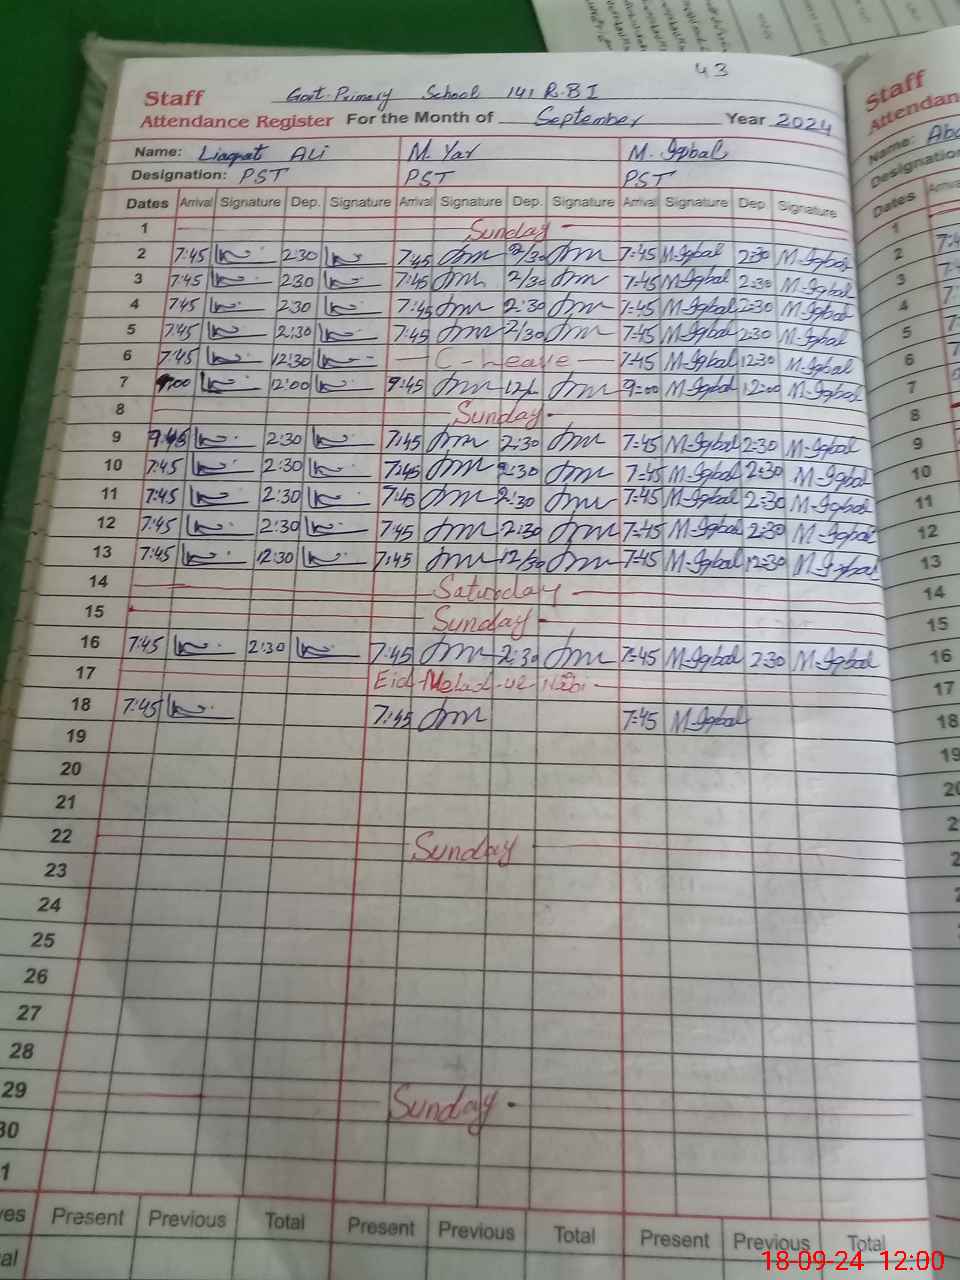 43
Staff Govt. Primary School 141 R.B I
Attendance Register For the Month of September Year 2024
Name: Liaqat Ali M. Yar M. Iqbal
Designation: PST PST PST
Dates Arrival Signature Dep. Signature Arrival Signature Dep. Signature Arrival Signature Dep. Signature
1 Sunday
2 7:45 2:30 7:45 2/30 7=45 M-Iqbal 2:30 M-Iqbal
3 7:45 2:30 7:45 2/30 7=45 M-Iqbal 2:30 M-Iqbal
4 7:45 2:30 7:45 2:30 7=45 M-Iqbal 2:30 M-Iqbal
5 7:45 2:30 7:45 2/30 7=45 M-Iqbal 2:30 M-Iqbal
6 7:45 12:30 C-Leave 7=45 M-Iqbal 12:30 M-Iqbal
7 12:00 9:45 9=00 M-Iqbal 12=00 M-Iqbal
8 Sunday
9 7:45 2:30 7:45 2:30 7=45 M-Iqbal 2=30 M-Iqbal
10 7:45 2:30 7:45 2:30 7=45 M-Iqbal 2=30 M-Iqbal
11 7:45 2:30 7:45 2:30 7=45 M-Iqbal 2=30 M-Iqbal
12 7:45 2:30 7:45 2:30 7=45 M-Iqbal 2:30 M-Iqbal
13 7:45 12:30 7:45 12/30 7=45 M-Iqbal 12=30 M-Iqbal
14 Saturday
15 Sunday
16 7:45 2:30 7:45 2:30 7=45 M-Iqbal 2:30 M-Iqbal
17 Eid-Melad-ue Nabi
18 7:45 7:45 7:45 M-Iqbal
19
20
21
22 Sunday
23
24
25
26
27
28
29 Sunday
30
1
Present Previous Total Present Previous Total Present Previous Total
Staff
Attendan
Name: Abd
Designation
Dates Arrival
1
2
3
4
5
6
7
8
9
10
11
12
13
14
15
16
17
18
19
18-09-24 12:00